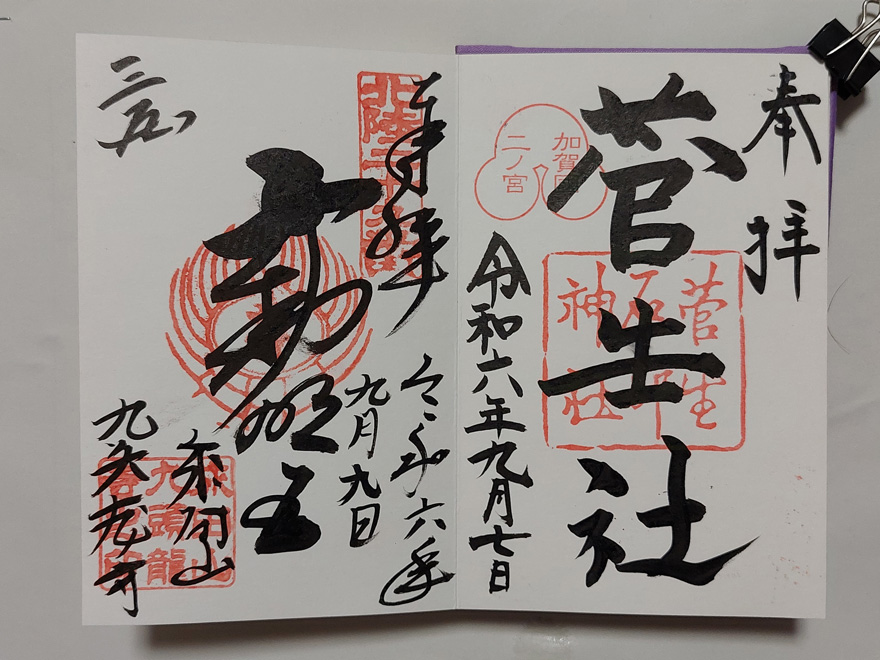 奉拝
菅生社
加賀国
二ノ宮
菅生
石部
神社
令和六年九月七日
奉拝
北陸三十六不動
不動明王
令和六年
九月九日
九頭龍寺
九頭龍